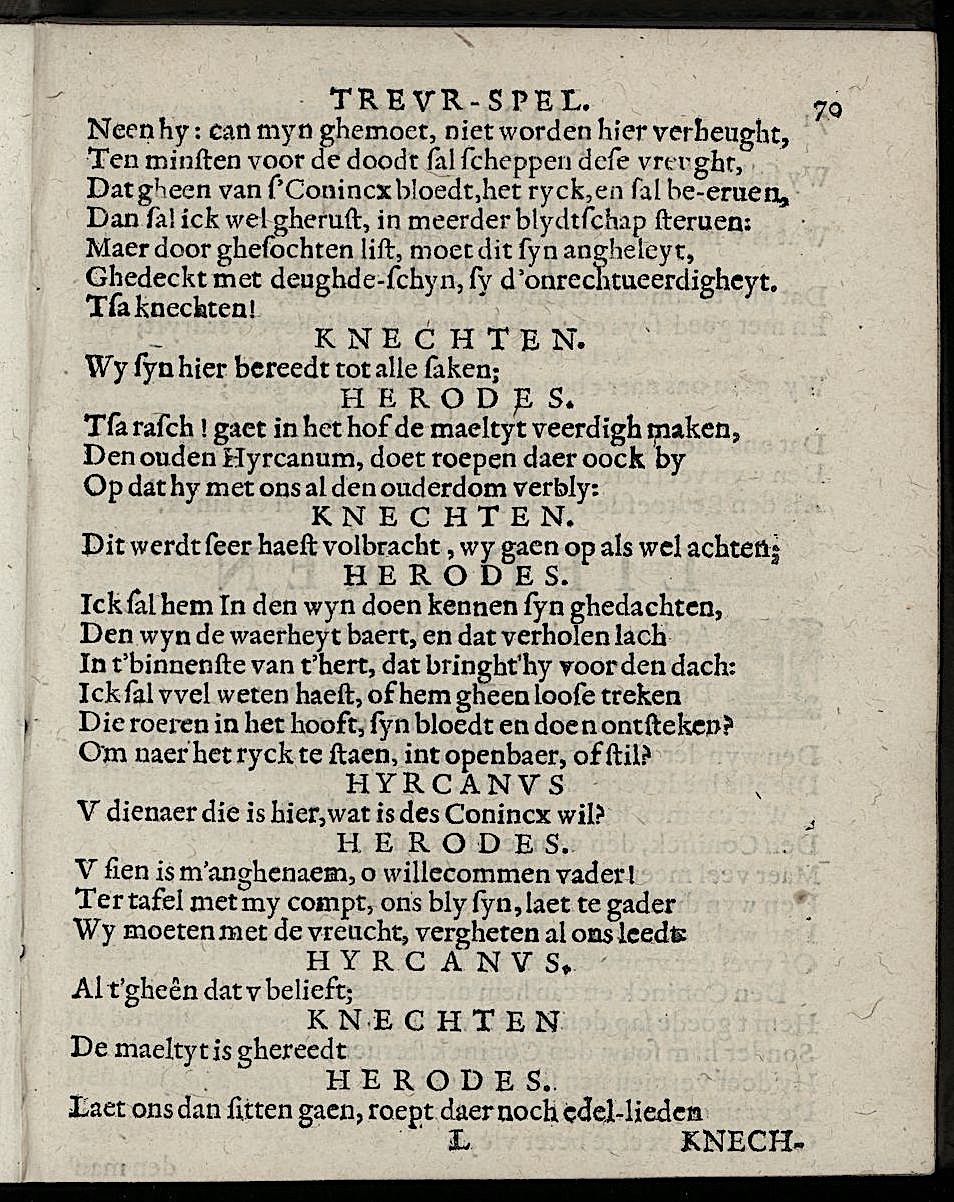 TREVR-SPEL. 70
Neen hy: can myn ghemoet, niet worden hier verheught,
Ten minſten voor de doodt ſal ſcheppen deſe vreught,
Dat gheen van ſ'Conincx bloedt, het ryck, en ſal be-eruen,
Dan ſal ick wel gheruſt, in meerder blydtſchap ſteruen:
Maer door gheſochten liſt, moet dit ſyn angheleyt,
Ghedeckt met deughde-ſchyn, ſy d'onrechtueerdigheyt.
Tſa knechten!
KNECHTEN.
Wy ſyn hier bereedt tot alle ſaken;
HERODES.
Tſa raſch! gaet in het hof de maeltyt veerdigh maken,
Den ouden Hyrcanum, doet roepen daer oock by
Op dat hy met ons al den ouderdom verbly:
KNECHTEN.
Dit werdt ſeer haeſt volbracht, wy gaen op als wel achten;
HERODES.
Ick ſal hem In den wyn doen kennen ſyn ghedachten,
Den wyn de waerheyt baert, en dat verholen lach
In t'binnenſte van t'hert, dat bringht'hy voor den dach:
Ick ſal vvel weten haeſt, of hem gheen looſe treken
Die roeren in het hooft, ſyn bloedt en doen ontſteken?
Om naer het ryck te ſtaen, int openbaer, of ſtil?
HYRCANVS
V dienaer die is hier, wat is des Conincx wil?
HERODES.
V ſien is m'anghenaem, o willecommen vader!
Ter tafel met my compt, ons bly ſyn, laet te gader
Wy moeten met de vreucht, vergheten al ons leedt:
HYRCANVS.
Al t'gheên dat v belieft;
KNECHTEN
De maeltyt is ghereedt
HERODES.
Laet ons dan ſitten gaen, roept daer noch edel-lieden
L KNECH-